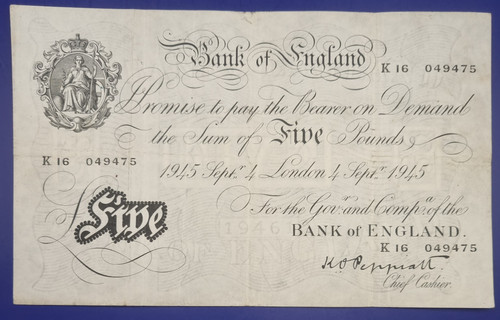 Bank of England
K 16 049475
I Promise to pay the Bearer on Demand
the Sum of Five Pounds
K 16 049475
1945 Septr. 4 London 4 Septr. 1945
For the Govr. and Compa. of the
BANK of ENGLAND.
£ Five
K 16 049475
K O Peppiatt
Chief Cashier.